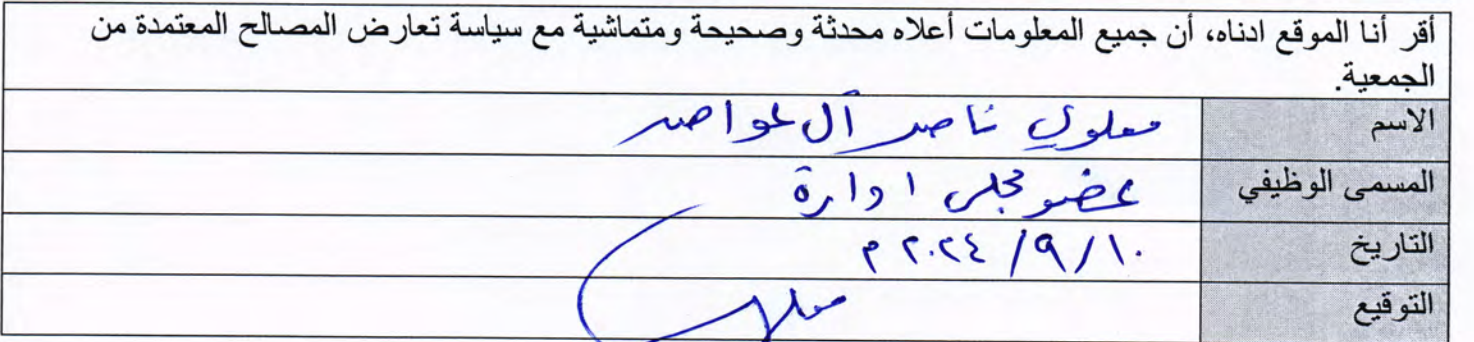 أقر أنا الموقع ادناه، أن جميع المعلومات أعلاه محدثة وصحيحة ومتماشية مع سياسة تعارض المصالح المعتمدة من
الجمعية.
الاسم معلوي ناصر آل عواض
المسمى الوظيفي عضو مجلس ادارة
التاريخ ١٠/٩/٢٠٢٤ م
التوقيع